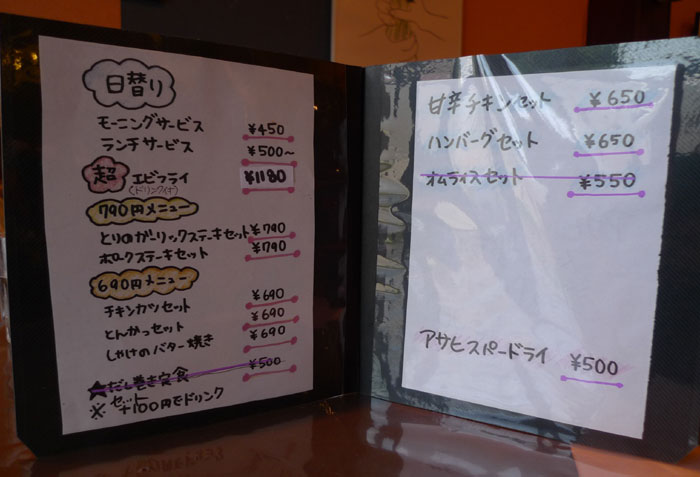 日替り
モーニングサービス ¥450
ランチサービス ¥500～
超エビフライ ¥1180
(ドリンク付)
790円メニュー
とりのガーリックステーキセット ¥790
ポークステーキセット ¥790
690円メニュー
チキンカツセット ¥690
とんかつセット ¥690
しゃけのバター焼き ¥690
★だし巻き定食 ¥500
※セット+100円でドリンク
甘辛チキンセット ¥650
ハンバーグセット ¥650
オムライスセット ¥550
アサヒスパードライ ¥500